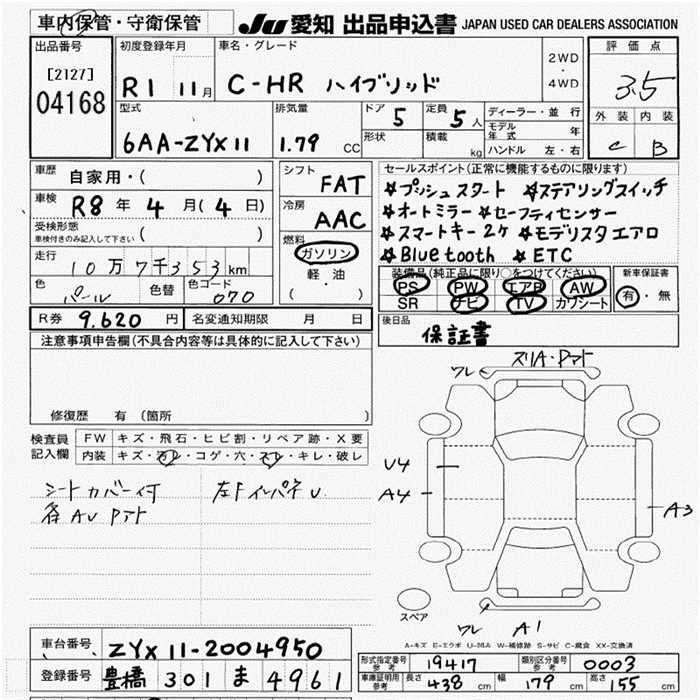 車内保管・守衛保管 JU 愛知 出品申込書 JAPAN USED CAR DEALERS ASSOCIATION
出品番号 初度登録年月 車名・グレード 評価点
[2127] R1 11月 C-HR ハイブリッド 2WD・4WD 3.5
04168
型式 排気量 ドア 5 定員 5人 ディーラー・並行 外装 内装
6AA-ZYX11 1.79 CC 形状 積載 kg モデル年式 年 C B
ハンドル 左・右
車歴 自家用・( )
車検 R8年4月(4日)
受検形態
車検付きのみ記入して下さい ( )
走行 10万7千353km
色 パール 色替 色コード 070
シフト FAT
冷房 AAC
燃料 ガソリン
軽・油
( )
セールスポイント(正常に機能するものに限ります)
☆プッシュスタート ☆ステアリングスイッチ
☆オートミラー ☆セーフティセンサー
☆スマートキー2ケ ☆モデリスタエアロ
☆Bluetooth ☆ETC
装備品(純正品に限り○をつけてください) 新車保証書
PS PW エアB AW 有・無
SR ナビ TV カワシート
R券 9,620円 名変通知期限 月 日 後日品 保証書
注意事項申告欄(不具合内容等は具体的に記入して下さい)
修復歴 有 (箇所 )
検査員記入欄 FW キズ・飛石・ヒビ割・リペア跡・X要
内装 キズ・汚レ・コゲ・穴・スレ・キレ・破レ
シートカバー付 左F インパネU
AU アト
ワレ ズリA・Pアト
U4
A4
A3
スペア
ワレ A1
A-キズ E-エクボ U-凹み W-補修跡 S-サビ C-腐食 XX-交換済
車台番号 ZYX11-2004950
登録番号 豊橋 301 ま 4961
形式指定番号 参考 19417 類別区分番号 参考 0003
車庫証明用 参考 長さ 438cm 幅 179cm 高さ 155cm